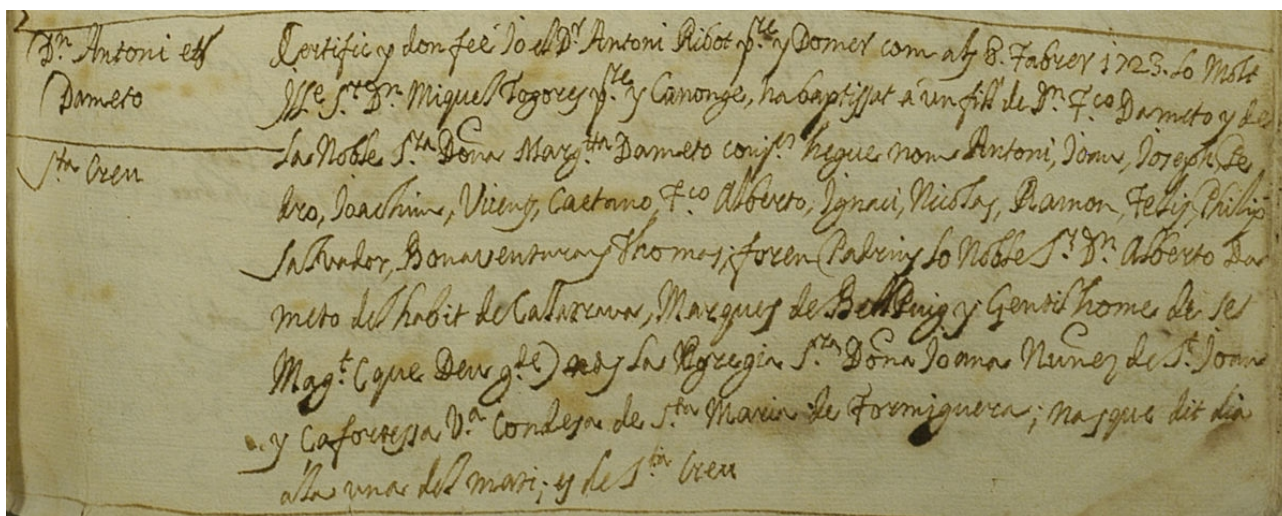 Dn. Antoni etc
Dameto
Sta Creu
Certific y don feè Jo el Dr. Antoni Ribot pre. y Domer com als 8. Fabrer 1723. lo Molt
Illе Sr. Dn. Miquel Togores pre. y Canonge, ha baptissat à un fill de Dn. Fco Dameto y de
la Noble Sra Doña Margtta Dameto conjs. hegue nom Antoni, Joan, Joseph, Pe
dro, Joachim, Vicens, Caetano, Fco Alberto, Ignaci, Nicolas, Ramon, Felis, Philip
Salvador, Bonaventura y Thomas; foren Padrins lo Noble Sr. Dn. Alberto Da
meto del habit de Calatrava, Marques de BellPuig y Gentilhome de se
Magt. (que Deu gde) y la Egregia Sra Doña Joana Nuñez de St. Joan
y Caforteza Va. Condesa de Sta Maria de Formiguera; nasque dit dia
a la una del mati; y de Sta Creu